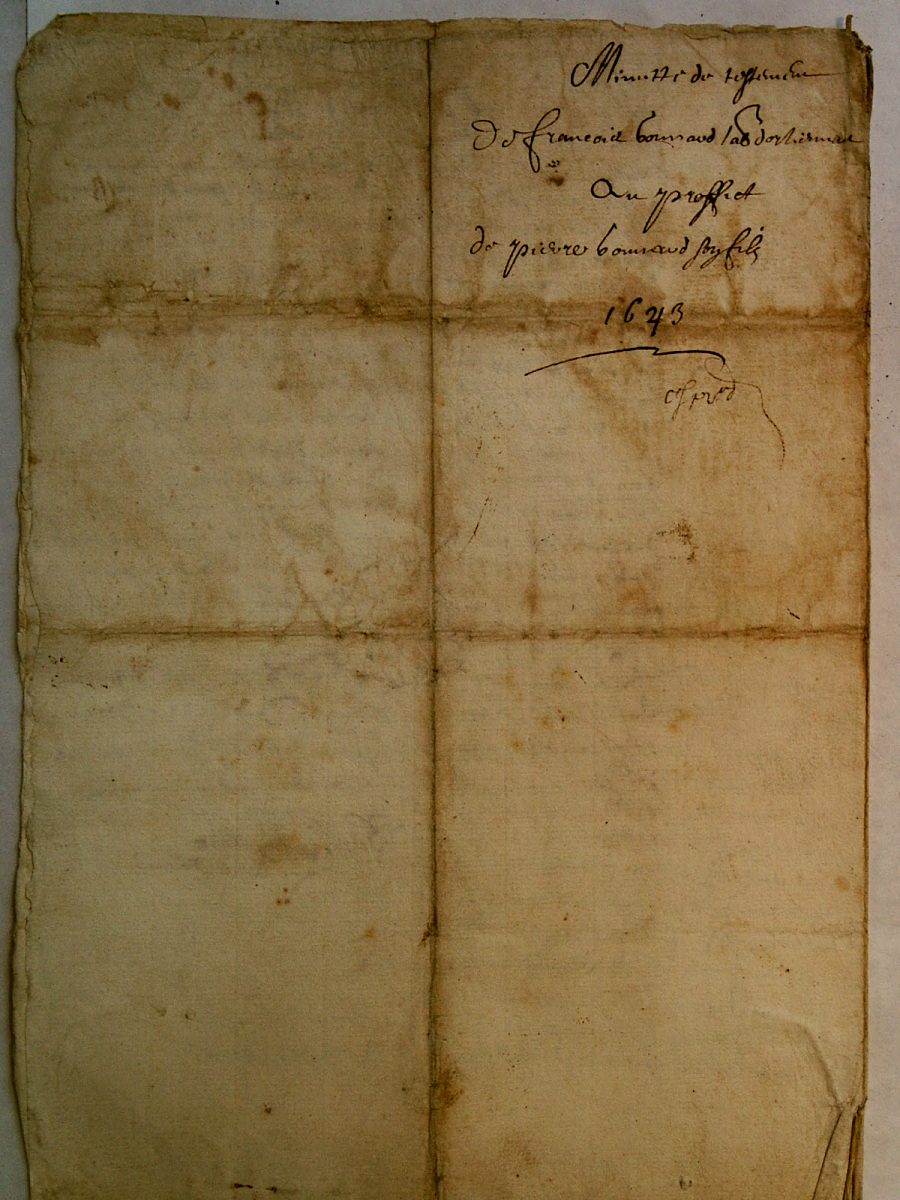 Minutte de testemen
De francois bonnard lab d
Au proffict
de pierre bonnard son filz
1643